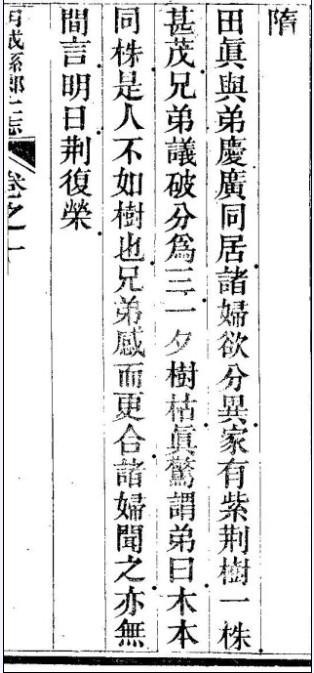 隋
田眞與弟慶廣同居諸婦欲分異家有紫荆樹一株
甚茂兄弟議破分爲三一夕樹枯眞驚謂弟曰木本
同株是人不如樹也兄弟感而更合諸婦聞之亦無
間言明日荆復榮
咸孫鄉土志 卷之一